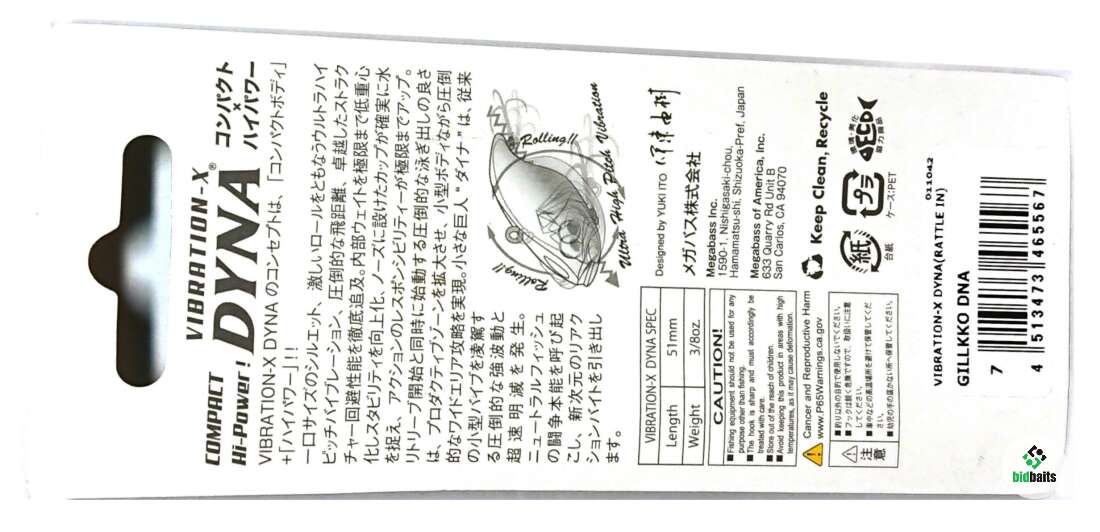 COMPACT
Hi-Power !
VIBRATION-X
DYNA®
コンパクト
×
ハイパワー
VIBRATION-X DYNA のコンセプトは、「コンパクトボディ」
+「ハイパワー」!!
一口サイズのシルエット、激しいロールをともなうウルトラハイ
ピッチバイブレーション、圧倒的な飛距離、卓越したストラク
チャー回避性能を徹底追及。内部ウェイトを極限まで低重心
化しスタビリティを向上化、ノーズに設けたカップが確実に水
を捉え、アクションのレスポンシビリティーが極限までアップ。
リトリーブ開始と同時に始動する圧倒的な泳ぎ出しの良さ
は、プロダクティブゾーンを拡大させ、小型ボディながら圧倒
的なワイドエリア攻略を実現。小さな巨人“ダイナ”は、従来
の小型バイブを凌駕す
る圧倒的な強波動と
超速明滅を発生。
ニュートラルフィッシュ
の闘争本能を呼び起
こし、新次元のリアク
ションバイトを引き出し
ます。
Rolling!!
Rolling!!
Ultra High Pitch Vibration
VIBRATION-X DYNA SPEC
Length 51mm
Weight 3/8oz.
Designed by YUKI ITO
メガバス株式会社
Megabass Inc.
1590-1, Nishigasaki-chou,
Hamamatsu-shi, Shizuoka-Pref, Japan
Megabass of America, Inc.
633 Quarry Rd Unit B
San Carlos, CA 94070
CAUTION!
■Fishing equipment should not be used for any
purpose other than fishing.
■The hook is sharp and must accordingly be
treated with care.
■Store out of the reach of children.
■Avoid keeping this product in areas with high
temperatures, as it may cause deformation.
Cancer and Reproductive Harm
www.P65Warnings.ca.gov
注意
■釣り以外の目的で使用しないでください。
■フックは鋭く危険ですので、取扱いに注意
してください。
■車中などの高温場所を避けて保管してくだ
さい。
■幼児の手の届かない所へ保管してください。
Keep Clean, Recycle
紙
台紙
プラ
ケース:PET
ECO
011042
VIBRATION-X DYNA(RATTLE IN)
GILLKKO DNA
4 513473 465567
7
bidbaits